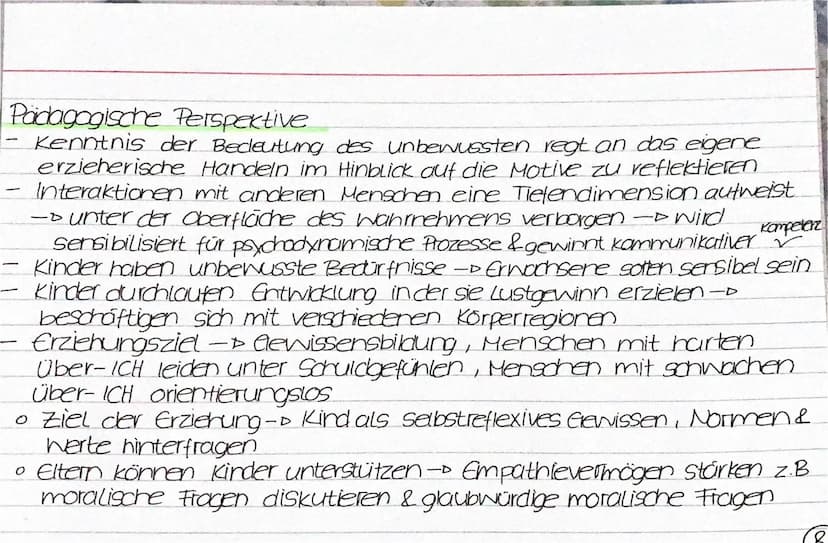 Pädagogische Perspektive
- Kenntnis der Bedeutung des unbewussten regt an das eigene
erzieherische Handeln im Hinblick auf die Motive zu reflektieren
- Interaktionen mit anderen Menschen eine Tiefendimension aufweist
→ unter der Oberfläche des Wahrnehmens verborgen → wird
Kompetenz
sensibilisiert für psychodynamische Prozesse & gewinnt kommunikativer ✓
- Kinder haben unbewusste Bedürfnisse → Erwachsene sollten sensibel sein
- Kinder durchlaufen Entwicklung in der sie Lustgewinn erzielen →
beschäftigen sich mit verschiedenen Körperregionen
- Erziehungsziel → Gewissensbildung, Menschen mit harten
Über-ICH leiden unter Schuldgefühlen, Menschen mit schwachen
über-ICH orientierungslos
o Ziel der Erziehung → Kind als selbstreflexives Gewissen, Normen &
Werte hinterfragen
o Eltern können Kinder unterstützen → Empathievermögen stärken z.B
moralische Fragen diskutieren & glaubwürdige moralische Fragen
8